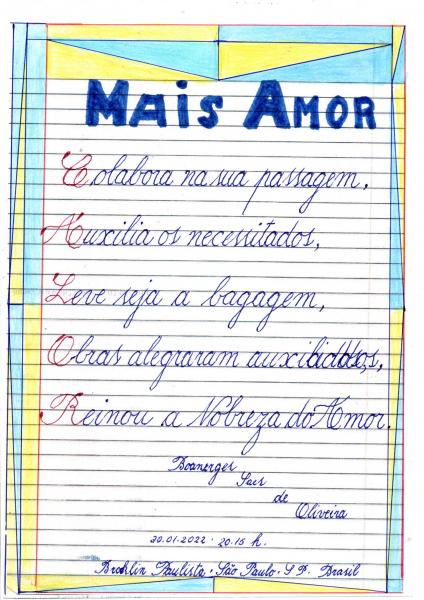 MAIS AMOR
Colabora na sua passagem,
Auxilia os necessitados,
Leve seja a bagagem,
Obras alegraram auxiliados,
Reinou a Nobreza do Amor.
Boanerges
Saes
de
Oliveira
30.01.2022 - 20:15 h.
Brooklin Paulista - São Paulo - SP. Brasil